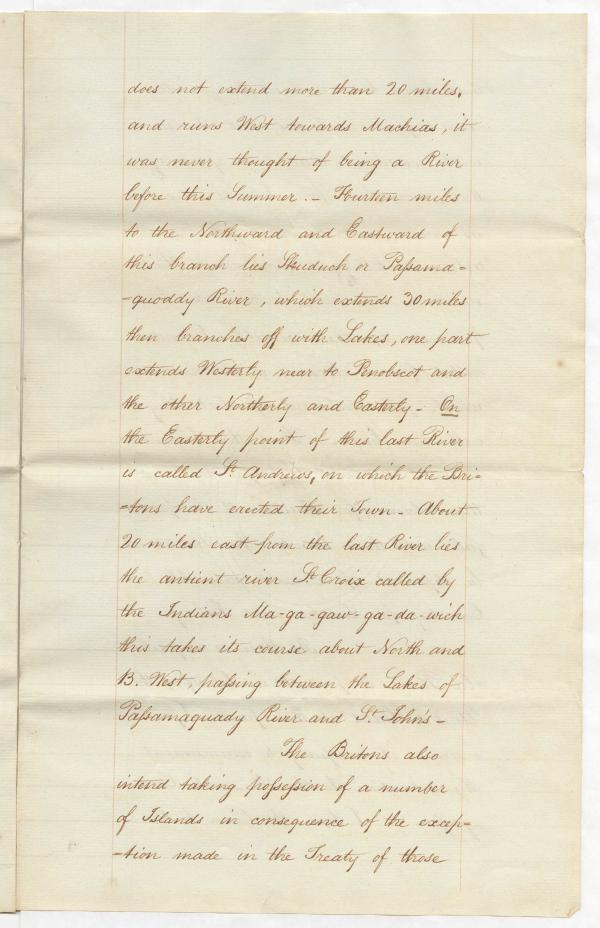 does not extend more than 20 miles,
and runs West towards Machias, it
was never thought of being a River
before this Summer. – Fourteen miles
to the Northward and Eastward of
this branch lies Skuduck or Paſsama=
-quoddy River, which extends 30 miles
then branches off with Lakes, one part
extends Westerly near to Penobscot and
the other Northerly and Easterly – On
the Easterly point of this last River
is called St. Andrews, on which the Bri=
=tons have erected their Town – About
20 miles east from the last River lies
the antient river St. Croix called by
the Indians Ma-ga-gaw-ga-da-wich
this takes its course about North and
B. West, paſsing between the Lakes of
Paſsamaquady River and St. John's –
The Britons also
intend taking poſseſsion of a number
of Islands in consequence of the excep=
-tion made in the Treaty of those